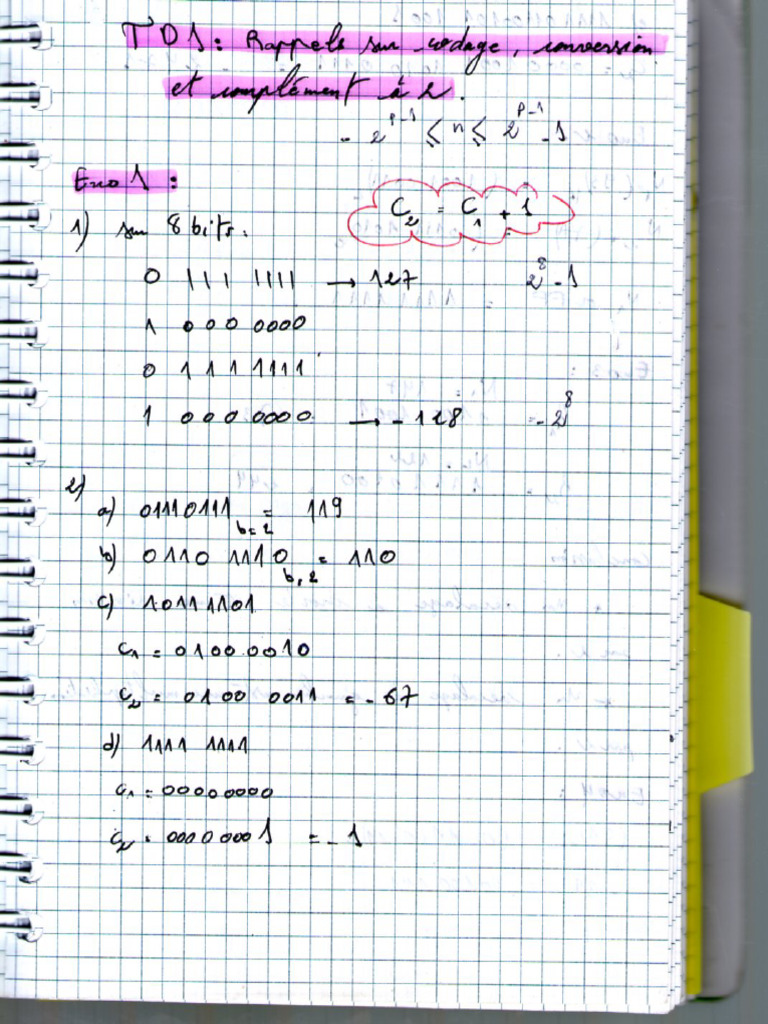 TD1: Rappels sur codage, conversion
et complément à 2.
- 2^(p-1) ≤ n ≤ 2^(p-1) - 1
Exo 1 :
C₂ = C₁ + 1
1) sur 8 bits.
0 111 1111 → 127 2^8 - 1
1 000 0000
0 111 1111
1 000 0000 → - 128 = - 2^8
2)
a) 01110111 b=2 = 119
b) 0110 1110 b,2 = 110
c) 10111101
C₁ = 0100 0010
C₂ = 0100 0011 = - 67
d) 1111 1111
C₁ = 00000000
C₂ = 0000 0001 = - 1